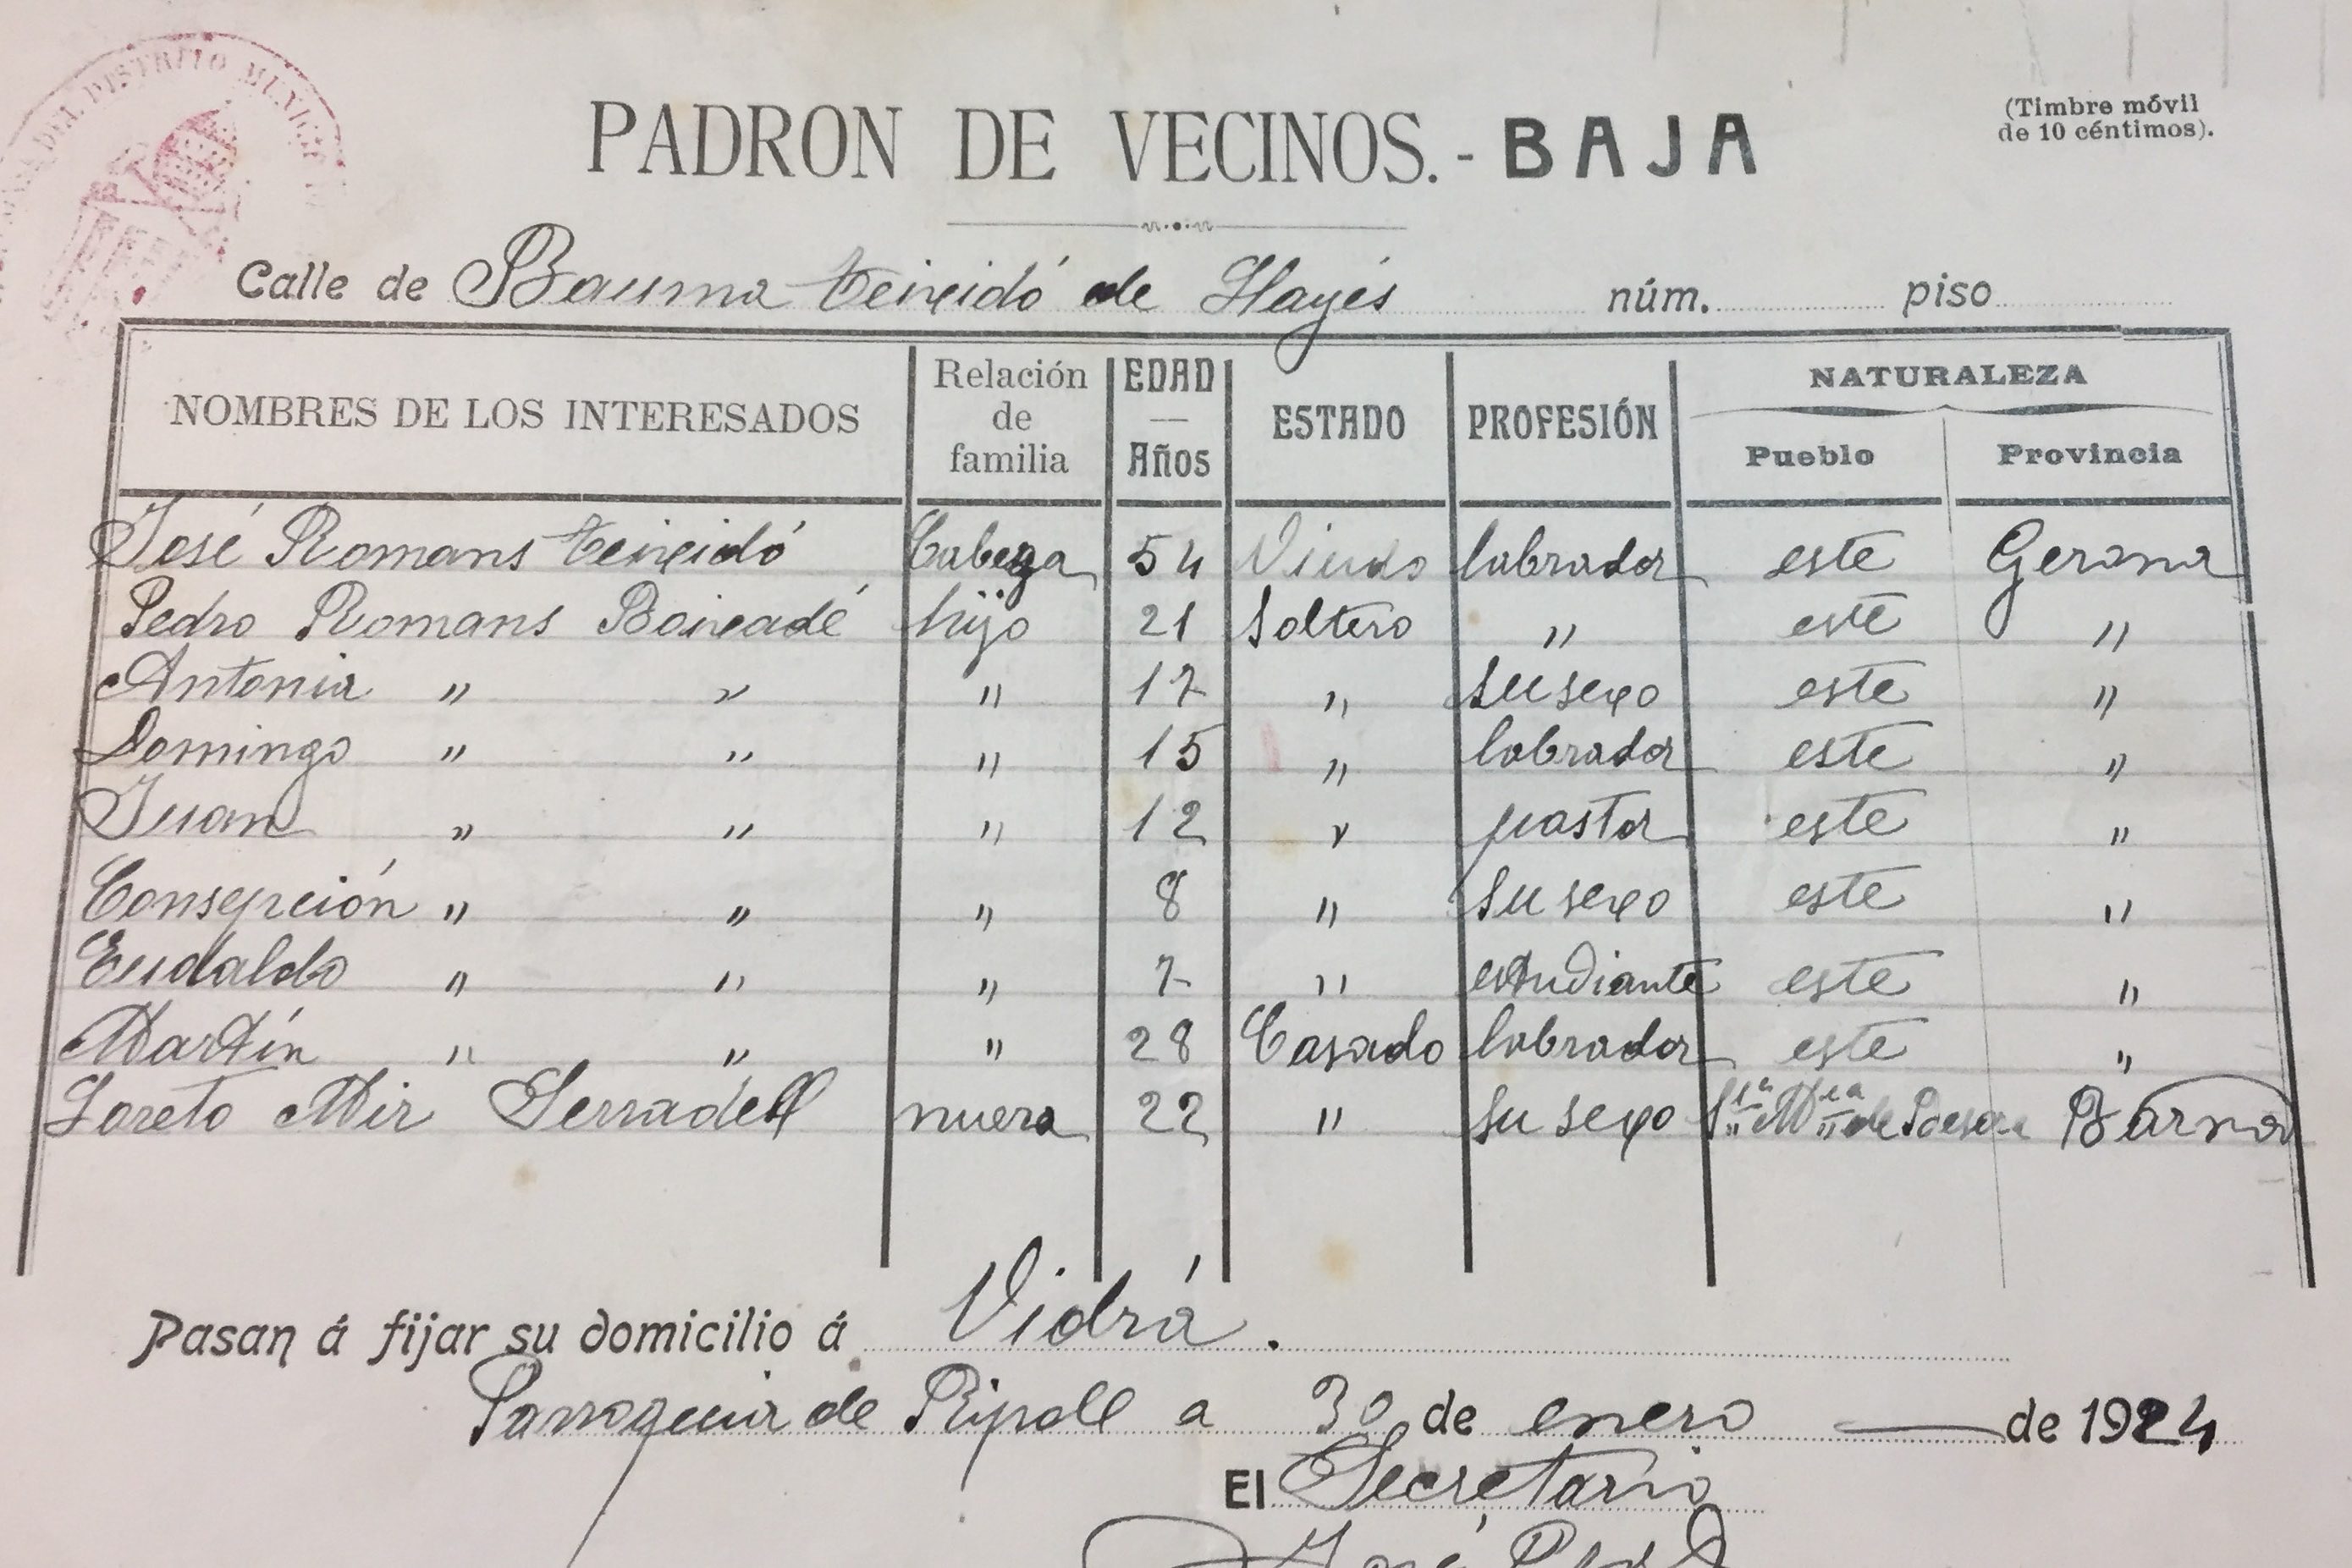 DEL DISTRITO MUNICIPAL
PADRON DE VECINOS.- BAJA
(Timbre móvil
de 10 céntimos).
Calle de Bauma teixidó de Llayés núm. piso
NOMBRES DE LOS INTERESADOS Relación de familia EDAD — Años ESTADO PROFESIÓN NATURALEZA Pueblo Provincia
José Romans teixidó Cabeza 54 Viudo labrador este Gerona
Pedro Romans Boixadé hijo 21 Soltero " este "
Antonia " " " 17 " su sexo este "
Domingo " " " 15 " labrador este "
Juan " " " 12 " pastor este "
Consepción " " " 8 " su sexo este "
Eudaldo " " " 7 " estudiante este "
Martín " " " 28 Casado labrador este "
Loreto Mir Serradell nuera 22 " su sexo Sta Mía de Barna
Pasan á fijar su domicilio á Vidrá.
Parroquia de Ripoll a 30 de enero de 1924
El Secretario
José